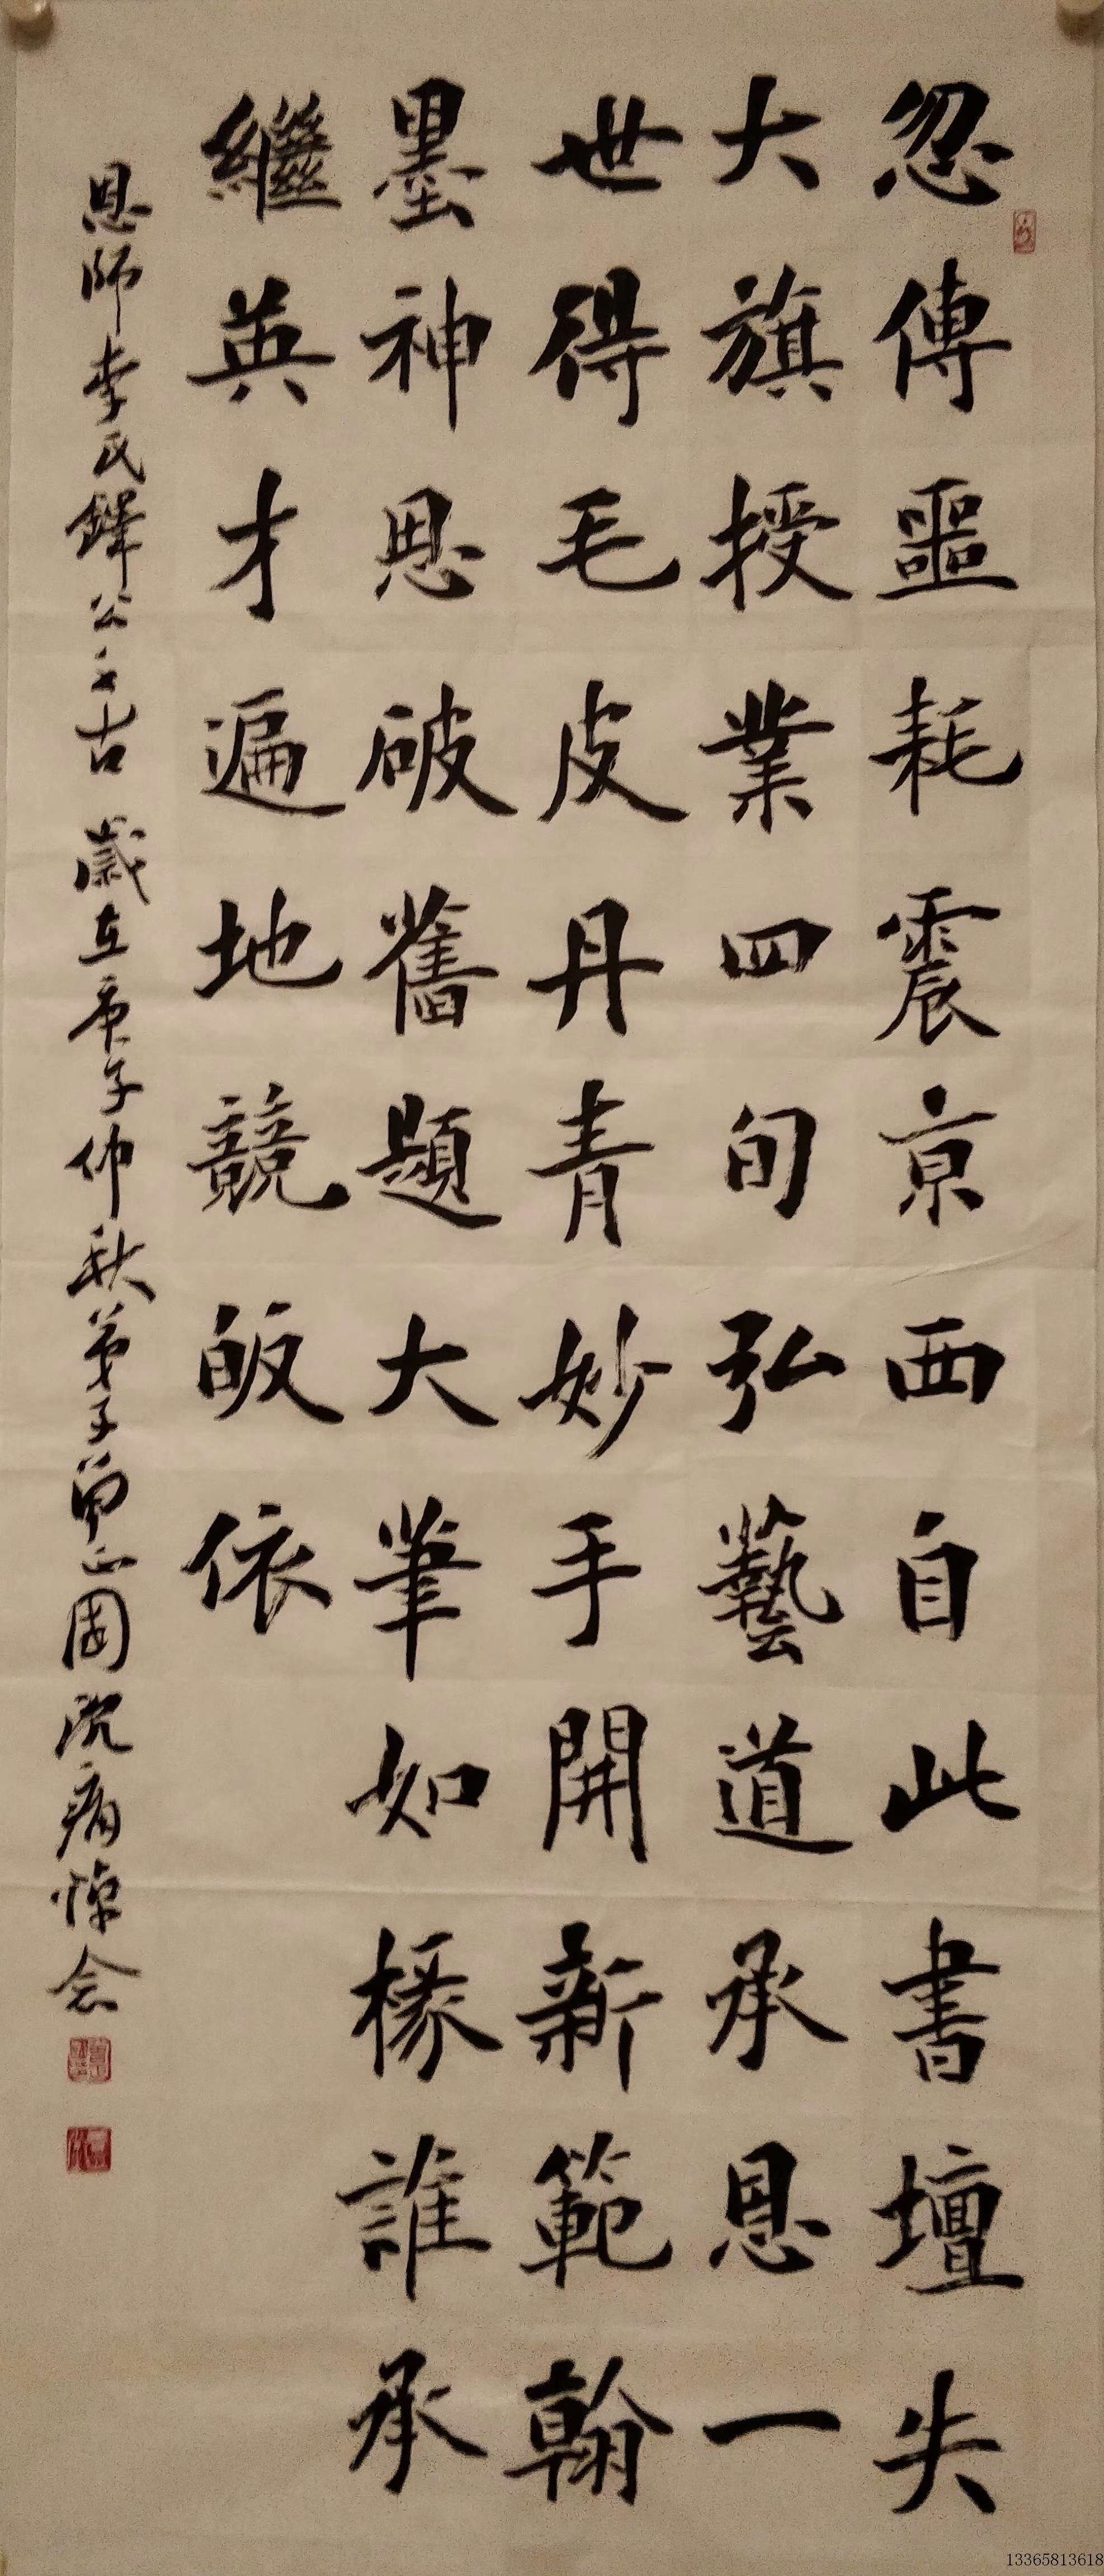 忽傳噩耗震京西自此書壇失
大旗授業四旬弘藝道承恩一
世得毛皮丹青妙手開新範翰
墨神思破舊題大筆如椽誰承
繼英才遍地競皈依
恩師李氏鐸公千古 歲在庚子仲秋弟子曾正國沉痛悼念
13365813618